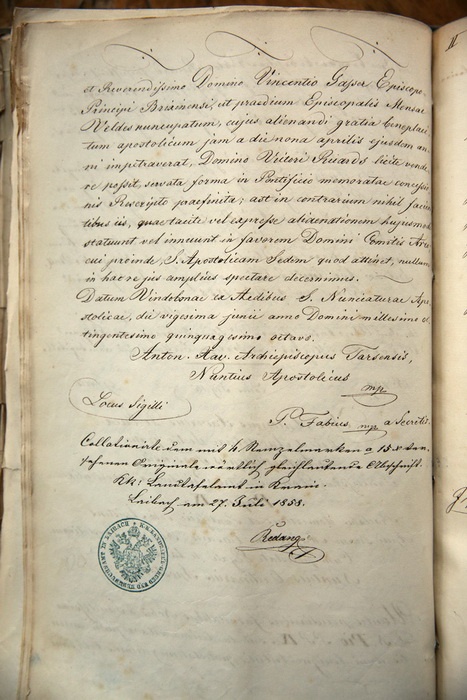 et Reverendissimo Domino Vincentio Gasser Episcopo
Principi Brixinensi, ut praedium Episcopalis Mensae
Veldes nuncupatum, cujus alienandi gratia beneplaci-
tum apostolicum jam a die nona aprilis ejusdem an-
ni impetraverat, Domino Victori Ruards licite vende-
re possit, servata forma in Pontificio memoratae concessio-
nis Rescripto praefinita; ast in contrarium nihil facien-
tibus iis, quae tacite vel expresse alienationem hujusmodi
statuunt vel innuunt in favorem Domini Comitis
cui proinde S. Apostolicam Sedem quod attinet, nullum
in hac re jus amplius spectare decernimus.
Datum Vindobonae ex Aedibus S. Nunciaturae Apo-
stolicae, die vigesima junii anno Domini millesimo oc-
tingentesimo quinquagesimo octavo.
Anton. Xav. Archiepiscopus Tarsensis,
Nuntius Apostolicus
mp
Locus Sigilli
P. Fabius, mp a Secretis.
Collationirt dem mit 4 Stempelmarken a 15 x ver-
sehenen Originale wörtlich gleichlautende Abschrift.
KK: Landtafelamt in Krain.
Laibach am 27. Juli 1858.